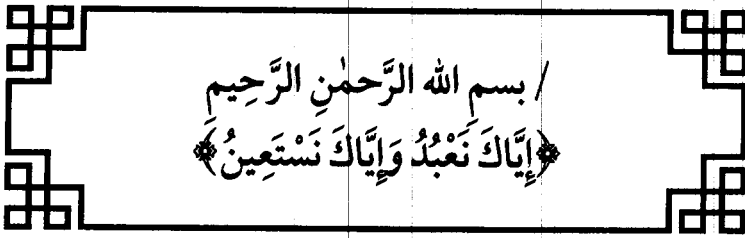 / بسمِ الله الرَّحمٰنِ الرَّحِيمِ
﴿إِيَّاكَ نَعْبُدُ وَإِيَّاكَ نَسْتَعِينُ﴾